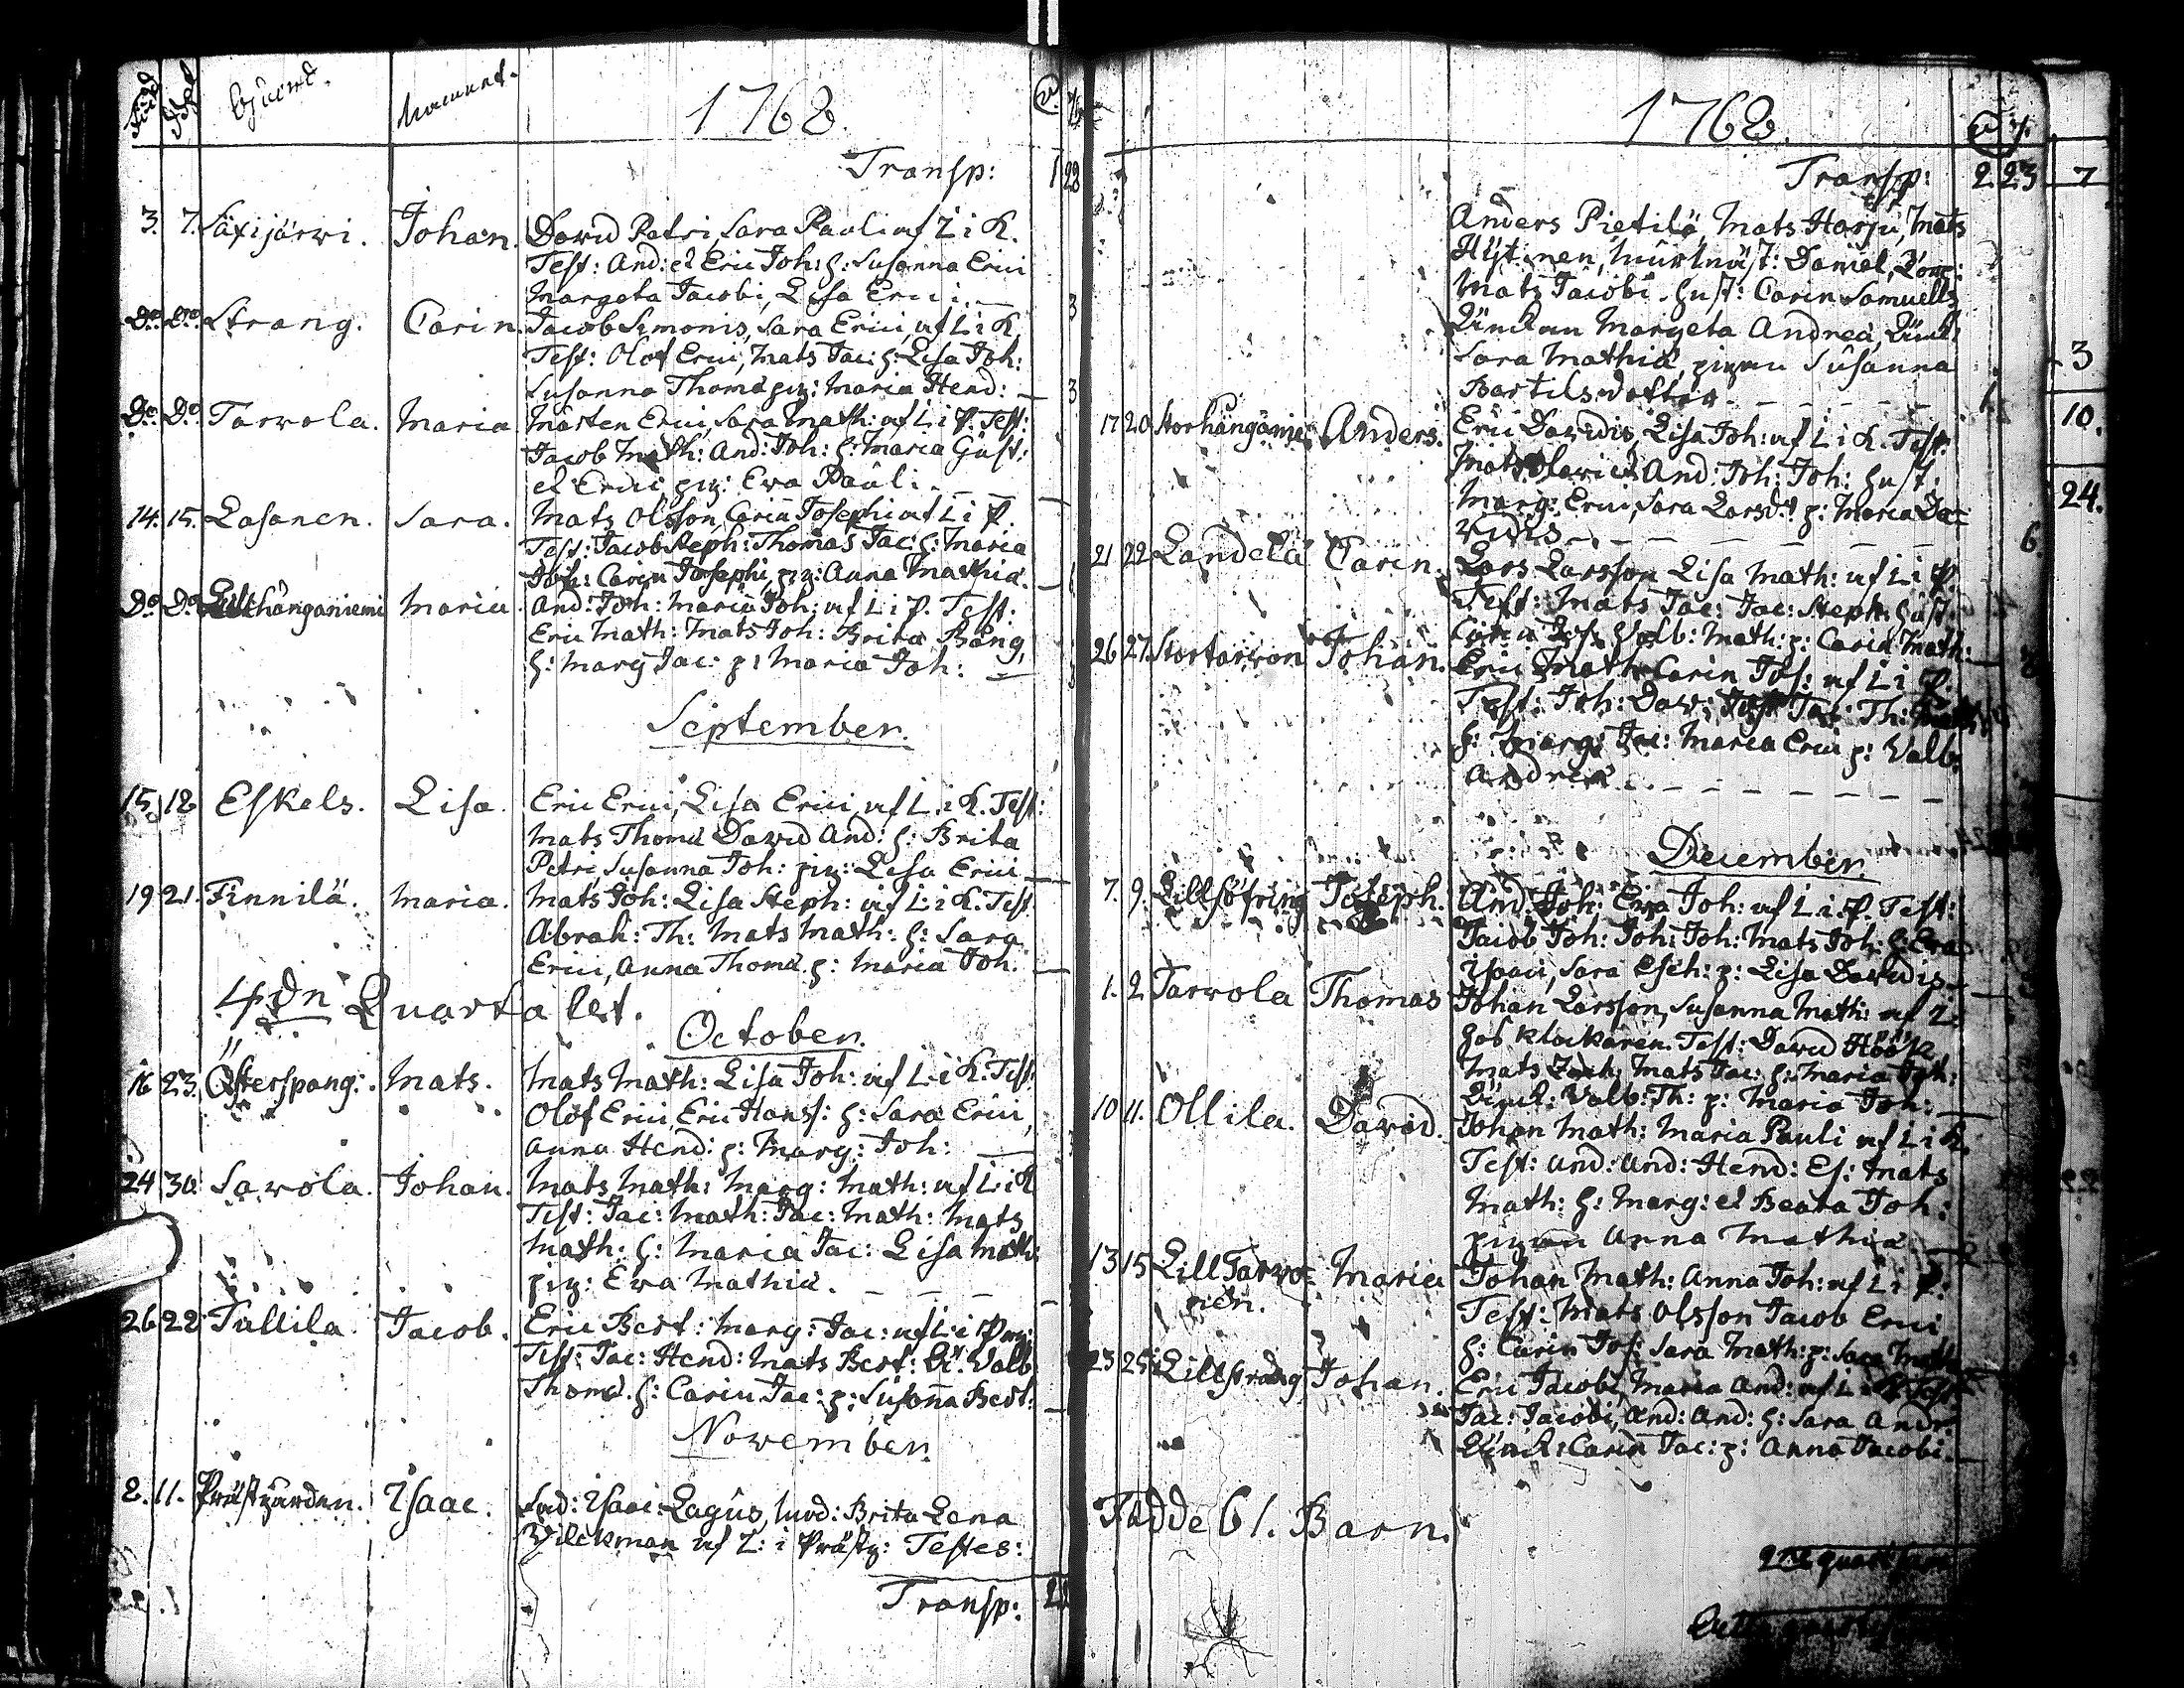 Född Döpt Hemvist. Namnet. 1768.
Transp: 1 28
3. 7. Säxijärwi. Johan. David Petri, Sara Pauli af L i K.
Test: And: et Eric Joh: h: Susanna Erici
Margeta Jacobi, Lisa Erici. —
Do. Do. Strang. Carin. Jacob Simonis, Sara Erici, af L i K. 3
Test: Olof Erici, Mats Jac: h: Lisa Joh:
Susanna Thomæ pig: Maria Hend: — 3
Do. Do. Tarvola. Maria Mårten Erici, Sara Math: af L i P. Test:
Jacob Math: And: Joh: h: Maria Gust:
et Erici pig: Eva Pauli.
14. 15. Lasanen. Sara. Mats Olsson, Carin Josephi af L i P.
Test: Jacob Steph: Thomas Jac: h: Maria
Joh: Carin Josephi, pig: Anna Mathiæ.
Do. Do. Lillhånganiemi Maria. And: Joh: Maria Joh: af L i P. Test:
Eric Math: Mats Joh: Brita Bång,
h: Marg Jac: p: Maria Joh: —
September.
15 18 Eskels. Lisa. Eric Erici, Lisa Erici af L. i K. Test:
Mats Thomæ David And: h: Brita
Petri, Susanna Joh: pig: Lisa Erici —
19 21. Finnilä. Maria. Mats Joh: Lisa Steph: af L i K. Test
Abrah: Th: Mats Math: h: Sara
Erici, Anna Thomæ. p: Maria Joh: —
4dn Quartalet.
October.
16 23. Österspång:. Mats. Mats Math: Lisa Joh: af L i K. Test
Olof Erici, Eric Hanss: h: Sara Erici,
Anna Hend: p: Marg: Joh: —
24 30. Savola. Johan. Mats Math: Marg: Math: af L i K
Test: Jac: Math: Jac: Math: Mats
Math: h: Maria Jac: Lisa Math:
pig: Eva Mathiæ. — — —
26 28 Tullila. Jacob. Eric Bert: Marg: Jac: af L i P
Test: Jac: Hend: Mats Bert: Valb
Thomæ. h: Carin Jac: p: Susanna Bert: —
November.
8. 11. Prästgården. Isaac. Isaac: Lagus, Brita Lena
Wilckman af L: i Prästg: Testes:
Transp:
1768.
Transp: 2 23 7
Anders Pietilä, Mats Harju, Mats
Hytinen, Daniel
Mats Jacobi. hust: Carin Samuells
Änckan Margeta Andreæ, Änck
Sara Mathiæ, pigan Susanna 3
Bartilsdotter — — — —
17 20 Storhånganie Anders. Eric Davidis, Lisa Joh: af L i K. Test: 10.
Mats And: Joh: Joh: hust:
Marg: Erici, Sara Larsd: p: Maria Da= 24.
vidis — — — — 6
21 22 Landela Carin. Lars Larsson Lisa Math: af L i P
Test: Mats Jac: Jac: Steph: hust
Valb: Math: p: Carin Math: —
26 27. Stortarvon Johan. Eric Math: Carin Jos: af L i P.
Test: Joh: Dav: Jac: Th:
h: Marg: Jac: Maria Erici p: Valb:
Andreæ. — — — — —
December.
7. 9. Lillsöfring Joseph. And: Joh: Eva Joh: af L i P. Test:
Jacob Joh: Joh: Joh: Mats Joh: h: Eva
Isaaci, Sara Esch: p: Lisa Davidis. —
1. 2 Tarvola Thomas Johan Larsson, Susanna Math: af L
hos klockaren. Test: David Höök
Mats Mats Jac: h: Maria Joh:
Änck: Valb: Th: p: Maria Joh: —
10 11. Ollila. David. Johan Math: Maria Pauli af L i K.
Test: And: And: Hend: Es: Mats
Math: h: Marg: et Beata Joh:
pigan Anna Mathiæ. —
13 15 Lill Tarvo= Maria Johan Math: Anna Joh: af L i P.
nen. Test: Mats Olsson Jacob Erici
h: Carin Jos: Sara Math: p: Sara Math
23 25 Lillstrang Johan. Eric Jacobi, Maria And: af L i K Test
Jac: Jacobi, And: And: h: Sara Andr:
Änck: Carin Jac: p: Anna Jacobi. —
Fädde 61. Barn.